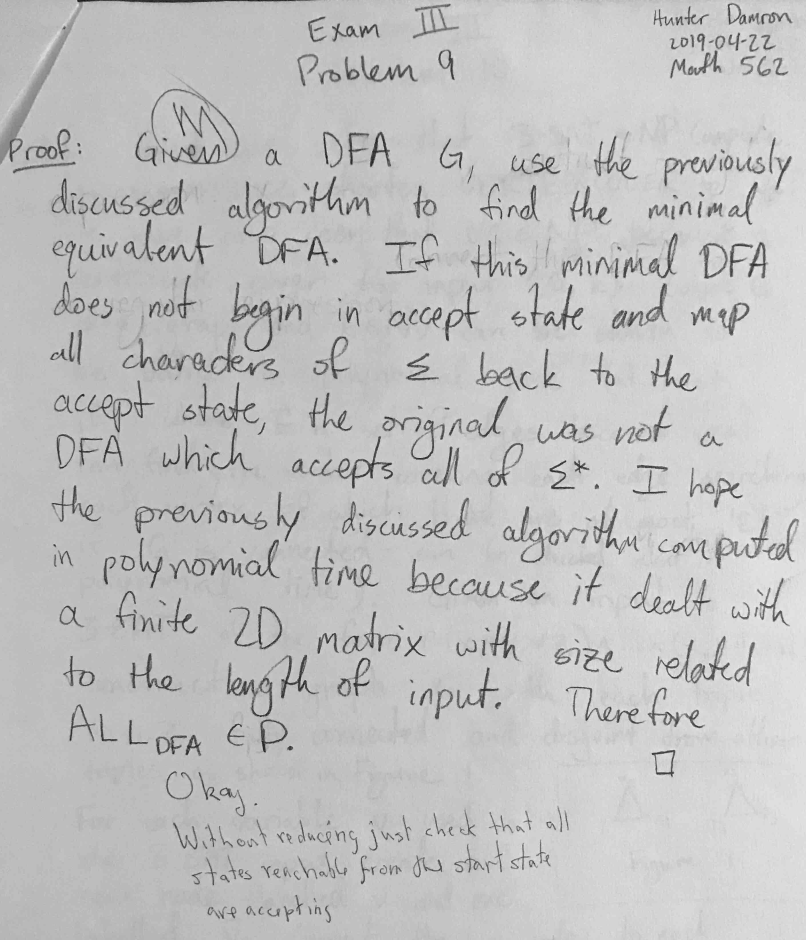 Exam III
Problem 9
Hunter Damron
2019-04-22
Math 562
M
Proof: Given a DFA G, use the previously
discussed algorithm to find the minimal
equivalent DFA. If this minimal DFA
does not begin in accept state and map
all characters of Σ back to the
accept state, the original was not a
DFA which accepts all of Σ*. I hope
the previously discussed algorithm computed
in polynomial time because it dealt with
a finite 2D matrix with size related
to the length of input. Therefore
ALL_DFA ∈ P. □
Okay.
Without reducing just check that all
states reachable from the start state
are accepting